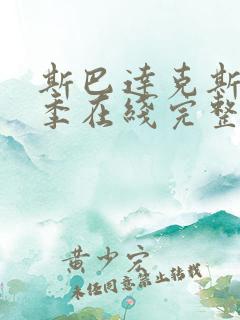 斯巴达克斯
季在线完整
黄少宏
未经同意禁止转载